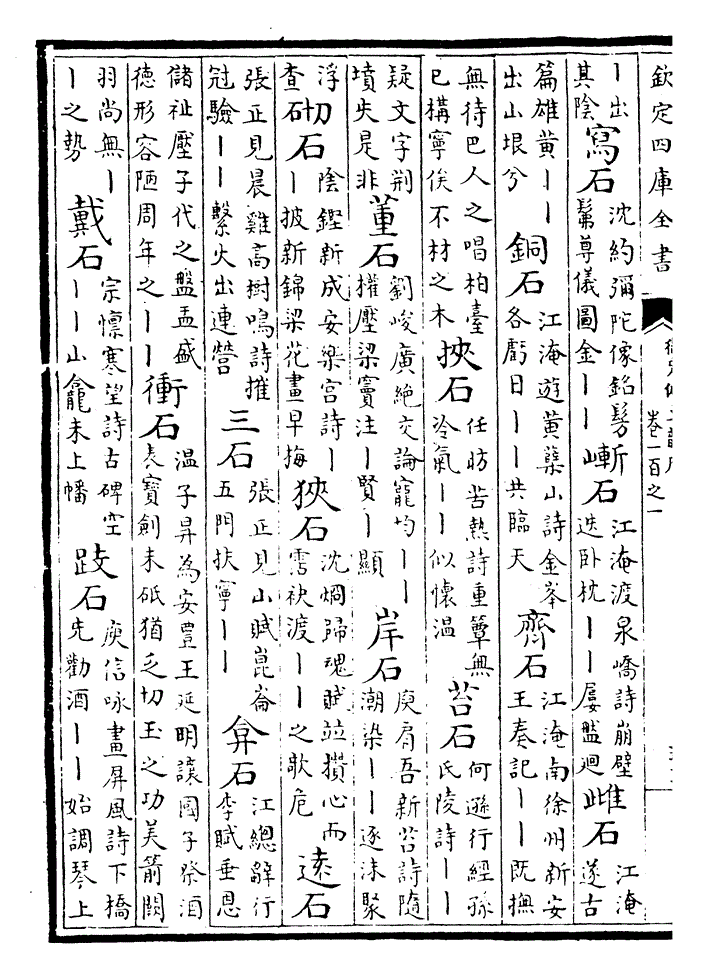 欽定四庫全書
卷一百之一
丨出
其陰
寫石
沈約彌陀像銘髣
髴尊儀圖金丨丨
嶄石
江淹渡泉嶠詩崩壁
迭卧枕丨丨屢盤迴
雌石
江淹
邃古
篇雄黄丨丨
出山垠兮
銅石
江淹遊黄蘗山詩金峯
各虧日丨丨共臨天
齊石
江淹南徐州新安
王奏記丨丨既撫
無待巴人之唱柏臺
已構寧俟不材之木
挾石
任昉苦熱詩重簟無
冷氣丨丨似懷温
苔石
何遜行經孫
氏陵詩丨丨
疑文字荆
墳失是非
董石
劉峻廣絶交論寵均丨丨
權壓梁竇注丨賢丨顯
岸石
庾肩吾新苔詩隨
潮染丨丨逐沫聚
浮
查
砌石
陰鏗新成安樂宫詩丨
丨披新錦梁花畫早梅
狹石
沈炯歸魂賦竝攢心而
雪袂渡丨丨之欹危
遠石
張正見晨雞高樹鳴詩摧
冠驗丨丨繫火出連營
三石
張正見山賦崑崙
五門扶寧丨丨
弇石
江總辭行
李賦垂恩
儲祉壓子代之盤盂盛
德形容陋周年之丨丨
衝石
温子昇為安豐王延明讓國子祭酒
表寶劍未砥猶乏切玉之功美箭闕
羽尚無丨
丨之勢
戴石
宗懍寒望詩古碑空
丨丨山龕未上幡
跂石
庾信咏畫屏風詩下橋
先勸酒丨丨始調琴上